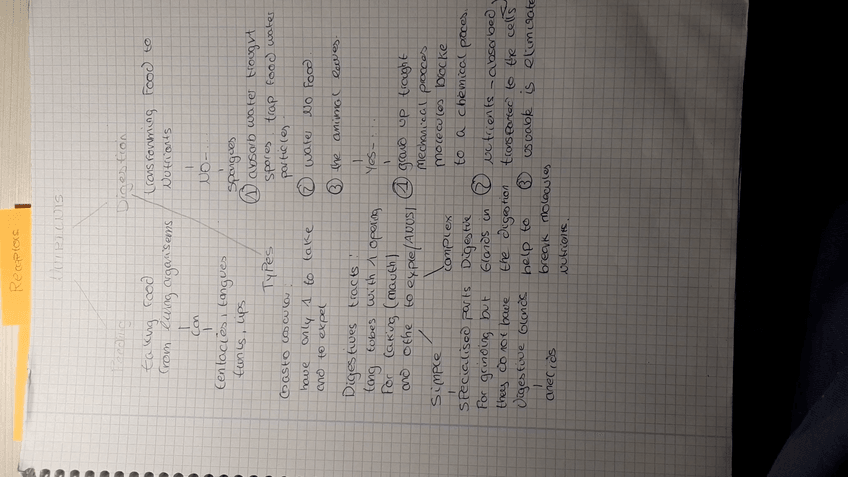 Digestion
taking Food
from living organisems
can
tentacles, tongues
fanks, lips
transforming Food to
Nutrients
NO-...
Spongues
① absorb water trought
spores. trap food water
particles.
② water NO Food.
③ the animal leaves.
Types
have only 1 to take
and to expel
Digestives tracts:
long tubes with 1 opening
For taking (mouth)
and othe to exple (ANUS)
Yes-...
① grand up trought
Mechanical process
molecules
to a chemical proces.
② Nutrients - absorbed
transfered to the cells
③ usuable is eliminate
Simple
complex
specialised parts
For grinding but
they do not have
digestive glands
anelids
Digestive
Glands in
the digestion
help to
break molecules
nutrients.